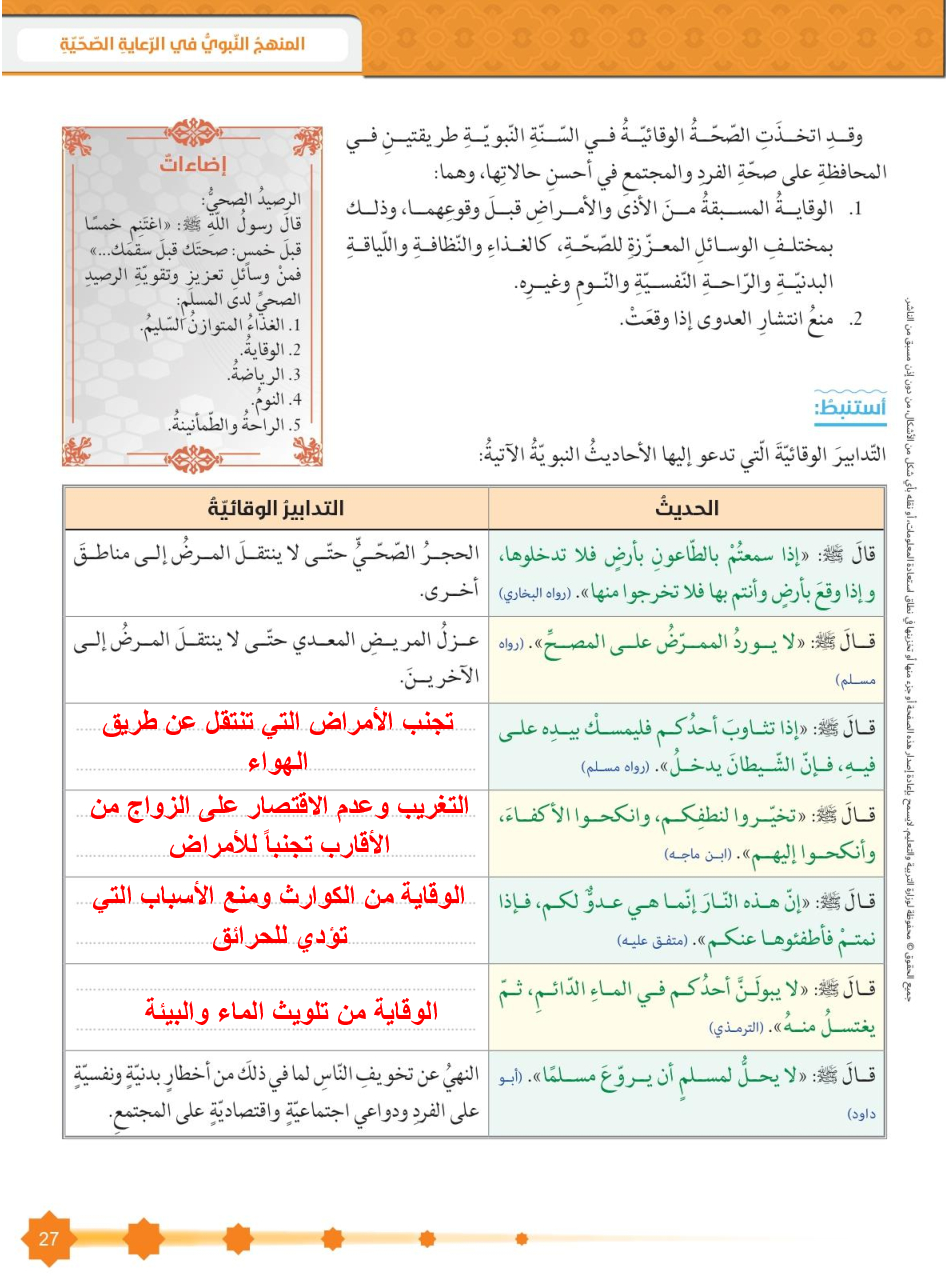 المنهجُ النّبويُّ في الرّعايةِ الصّحّيّةِ
وقـدِ اتخـذَتِ الصّحّـةُ الوقائيّـةُ فـي السّـنّةِ النّبويّـةِ طريقتيـنِ فـي
المحافظةِ على صحّةِ الفردِ والمجتمعِ في أحسنِ حالاتِها، وهما:
1. الوقايـةُ المسـبقةُ مـنَ الأذى والأمـراضِ قبـلَ وقوعِهمـا، وذلـك
بمختلـفِ الوسـائلِ المعـزّزةِ للصّحّـةِ، كالغـذاءِ والنّظافـةِ واللّياقـةِ
البدنيّـةِ والرّاحـةِ النّفسـيّةِ والنّـومِ وغيـرِه.
2. منعُ انتشارِ العدوى إذا وقعَتْ.
إضاءاتٌ
الرصيدُ الصحيُّ:
قالَ رسولُ اللهِ ﷺ: «اغتَنِم خمسًا
قبلَ خمسٍ: صحتَك قبلَ سقمَك...»
فمنْ وسائلِ تعزيزِ وتقويّةِ الرصيدِ
الصحيِّ لدى المسلمِ:
1. الغذاءُ المتوازنُ السّليمُ.
2. الوقايةُ.
3. الرياضةُ.
4. النومُ.
5. الراحةُ والطّمأنينةُ.
أستنبطُ:
التّدابيرَ الوقائيّةَ الّتي تدعو إليها الأحاديثُ النبويّةُ الآتيةُ:
الحديثُ
التدابيرُ الوقائيّةُ
قالَ ﷺ: «إذا سمعتُمْ بالطّاعونِ بأرضٍ فلا تدخلوها،
وإذا وقعَ بأرضٍ وأنتم بها فلا تخرجوا منها». (رواه البخاري)
الحجـرُ الصّحّـيُّ حتّـى لا ينتقـلَ المـرضُ إلـى مناطـقَ
أخـرى.
قـالَ ﷺ: «لا يـوردُ الممـرّضُ علـى المصـحِّ». (رواه
مسـلم)
عـزلُ المريـضِ المعـدي حتّـى لا ينتقـلَ المـرضُ إلـى
الآخريـنَ.
قـالَ ﷺ: «إذا تثـاوبَ أحدُكـم فليمسـكْ بيـدِه علـى
فيـهِ، فـإنّ الشّـيطانَ يدخـلُ». (رواه مسـلم)
تجنب الأمراض التي تنتقل عن طريق
الهواء
قـالَ ﷺ: «تخيّـروا لنطفِكـم، وانكحـوا الأكفـاءَ،
وأنكحـوا إليهـم». (ابـن ماجـه)
التغريب وعدم الاقتصار على الزواج من
الأقارب تجنباً للأمراض
قـالَ ﷺ: «إنّ هـذه النّـارَ إنّمـا هـي عـدوٌّ لكـم، فـإذا
نمتـمْ فأطفئوهـا عنكـم». (متفـق عليـه)
الوقاية من الكوارث ومنع الأسباب التي
تؤدي للحرائق
قـالَ ﷺ: «لا يبولَـنَّ أحدُكـم فـي المـاءِ الدّائـمِ، ثـمّ
يغتسـلُ منـهُ». (الترمـذي)
الوقاية من تلويث الماء والبيئة
قـالَ ﷺ: «لا يحـلُّ لمسـلمٍ أن يـروّعَ مسـلمًا». (أبـو
داود)
النهيُ عن تخويفِ النّاسِ لما في ذلكَ من أخطارٍ بدنيّةٍ ونفسيّةٍ
على الفردِ ودواعي اجتماعيّةٍ واقتصاديّةٍ على المجتمعِ.
جميع الحقوق © محفوظة لوزارة التربية والتعليم. لايسمح بإعادة إصدار هذه الصفحة أو جزء منها أو تخزينها في نطاق استعادة المعلومات، أو نقله بأي شكل من الأشكال، من دون إذن مسبق من الناشر.
27